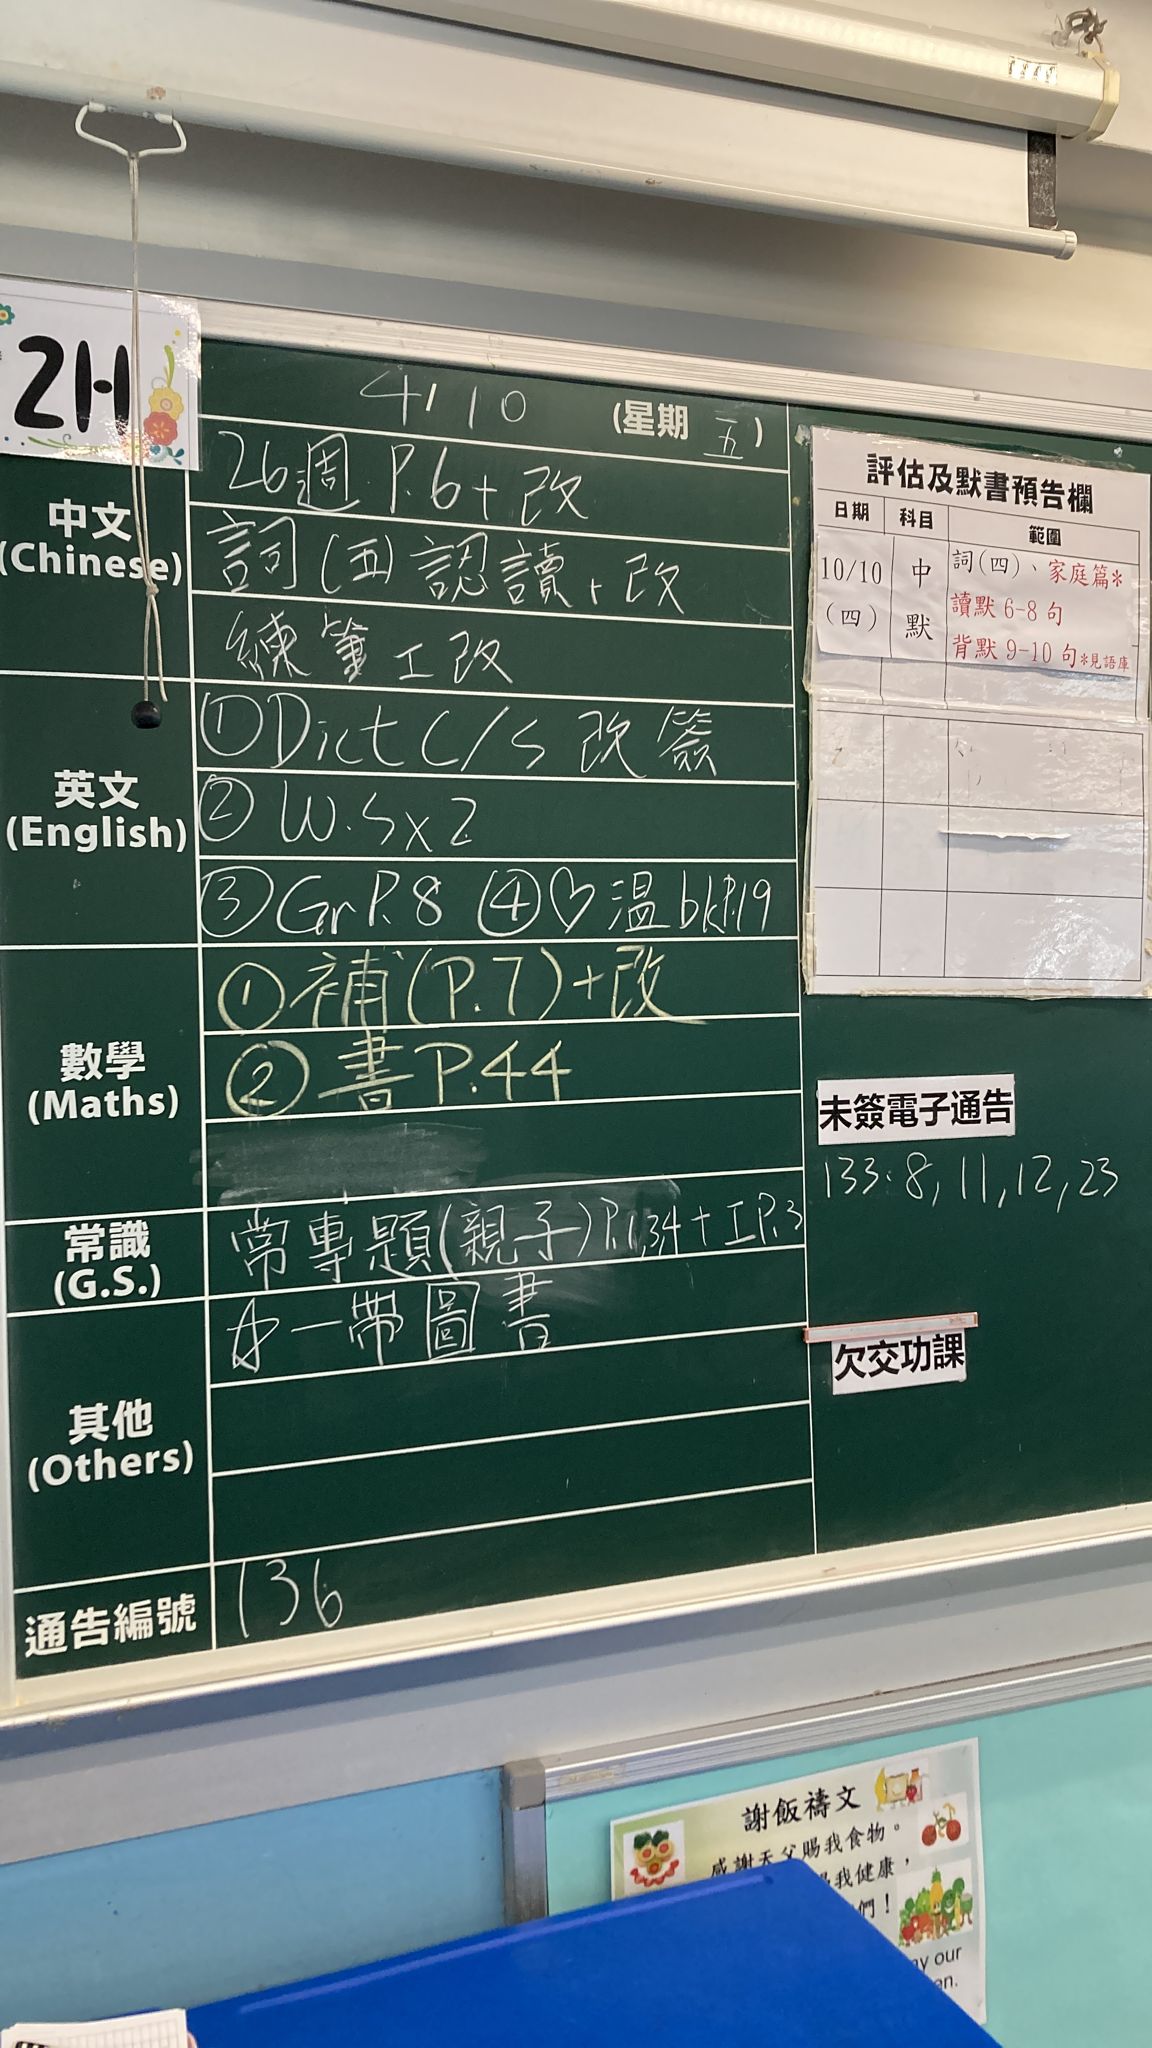 2H
4/10 (星期五)
中文
(Chinese)
26週 P.6+改
詞(五)認讀+改
練筆工改
英文
(English)
①Dict C/S 改簽
② W.S x2
③Gr P.8 ④♡溫 bk P.19
數學
(Maths)
①補(P.7)+改
②書P.44
常識
(G.S.)
常專題(親子)P.1,3,4+工P.3
其他
(Others)
☆一帶圖書
通告編號
136
評估及默書預告欄
日期 科目 範圍
10/10 中 詞(四)、家庭篇*
(四) 默 讀默 6-8 句
背默 9-10 句*見語庫
未簽電子通告
133:8,11,12,23
欠交功課
謝飯禱文
感謝天父賜我食物。
我健康,
們!
our